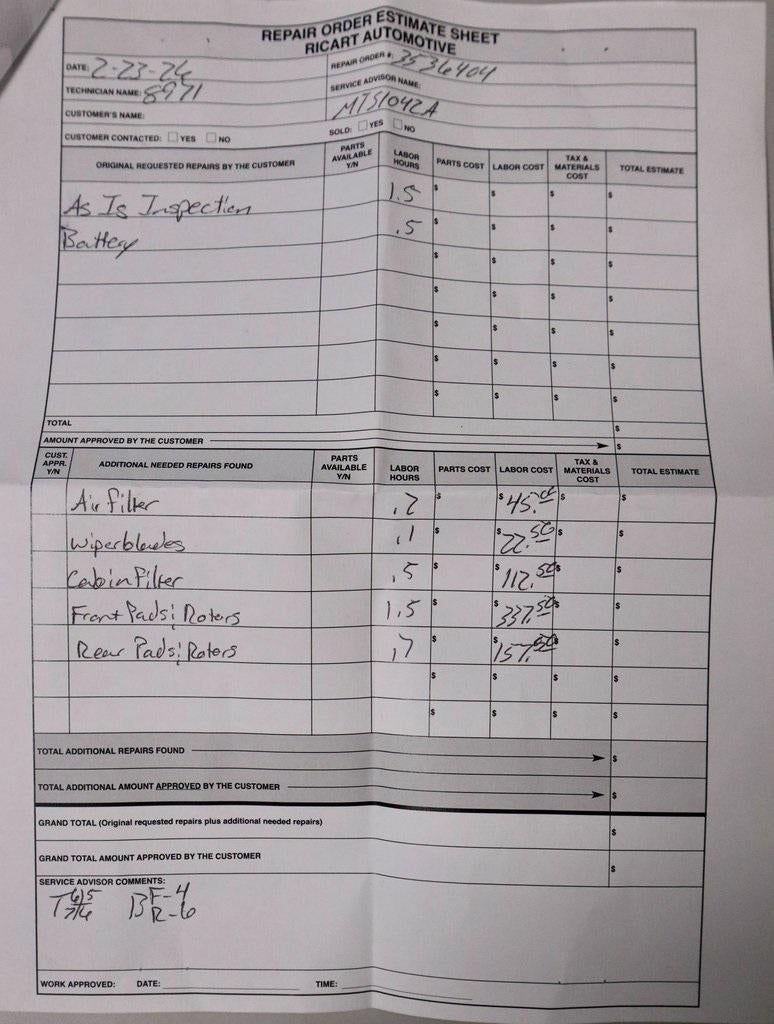 REPAIR ORDER ESTIMATE SHEET
RICART AUTOMOTIVE
DATE: 2-23-26 REPAIR ORDER #: 3536404
TECHNICIAN NAME: 8971 SERVICE ADVISOR NAME:
CUSTOMER'S NAME: MTS1042A
CUSTOMER CONTACTED: YES NO SOLD: YES NO
ORIGINAL REQUESTED REPAIRS BY THE CUSTOMER PARTS AVAILABLE Y/N LABOR HOURS PARTS COST LABOR COST TAX & MATERIALS COST TOTAL ESTIMATE
As Is Inspection 1.5 $ $ $ $
Battery .5 $ $ $ $
$ $ $ $
$ $ $ $
$ $ $ $
$ $ $ $
$ $ $ $
TOTAL $
AMOUNT APPROVED BY THE CUSTOMER $
CUST. APPR. Y/N ADDITIONAL NEEDED REPAIRS FOUND PARTS AVAILABLE Y/N LABOR HOURS PARTS COST LABOR COST TAX & MATERIALS COST TOTAL ESTIMATE
Air Filter .2 $ $45. $ $
Wiperblades .1 $ $22.50 $
Cabin Filter .5 $ $112.50 $ $
Front Pads: Rotors 1.5 $ $337.50 $ $
Rear Pads: Rotors .7 $ $157.50 $ $
$ $ $ $
$ $ $ $
TOTAL ADDITIONAL REPAIRS FOUND $
TOTAL ADDITIONAL AMOUNT APPROVED BY THE CUSTOMER $
GRAND TOTAL (Original requested repairs plus additional needed repairs) $
GRAND TOTAL AMOUNT APPROVED BY THE CUSTOMER $
SERVICE ADVISOR COMMENTS:
T 6/5 B F-4
7/6 R-6
WORK APPROVED: DATE: TIME: